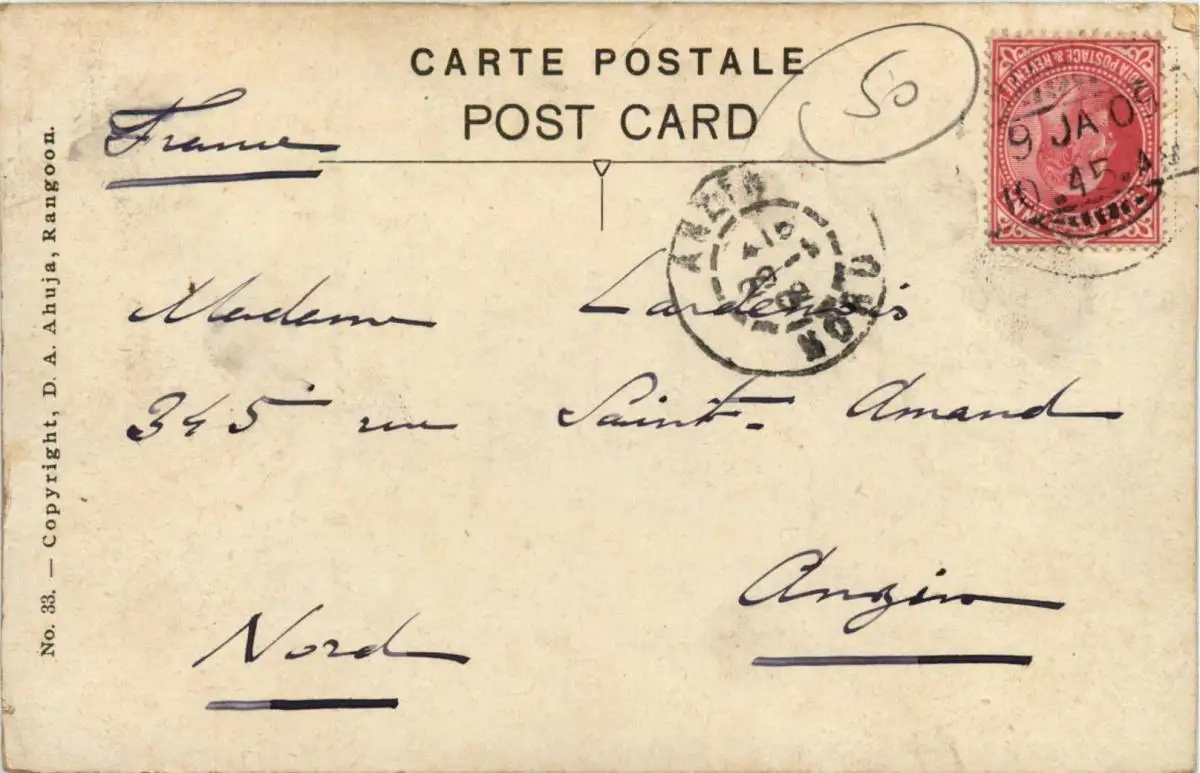 CARTE POSTALE
POST CARD
50
France
INDIA POSTAGE & REVENUE
9 JA 0
10.45.A
ANZIN
NORD
Madame Lardenois
345 rue Saint-Amand
Anzin
Nord
No. 33. — Copyright, D. A. Ahuja, Rangoon.